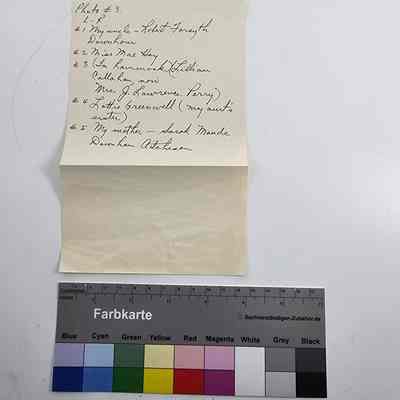 Photo #3.
L-R
#1 My uncle - Robert Forsyth
Downham
#2 Miss Mae Hay
#3 (In hammock) (Lillian
Callahan now
Mrs. J. Lawrence Perry)
#4 Lottie Greenwell (my aunt's
sister)
#5 My mother - Sarah Maude
Downham Aitcheson
Farbkarte
Sachverständigen-Zubehör.de
Blue Cyan Green Yellow Red Magenta White Grey Black